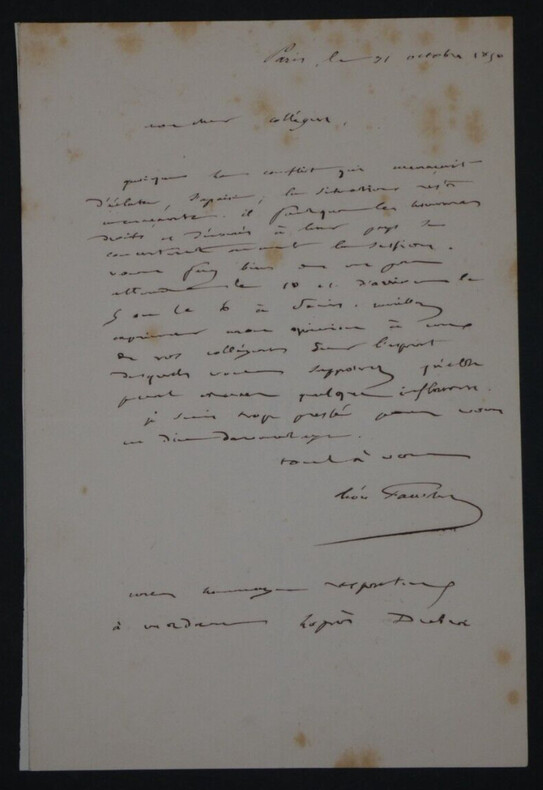 Paris, le 31 octobre 1850
mon cher collègue,
quoique le conflit qui menaçait
d'éclater, s'apaise, la situation reste
menaçante. il faut que les hommes
droits et dévoués à leur pays se
concertent avant la session.
vous ferez bien de ne pas
attendre le 10 et d'arriver le
5 ou le 6 à Paris. veuillez
exprimer mon opinion à ceux
de vos collègues sur l'esprit
desquels vous supposez qu'elle
peut exercer quelque influence.
je suis trop pressé pour vous
en dire davantage.
tout à vous
Léon Faucher
mes hommages respectueux
à madame